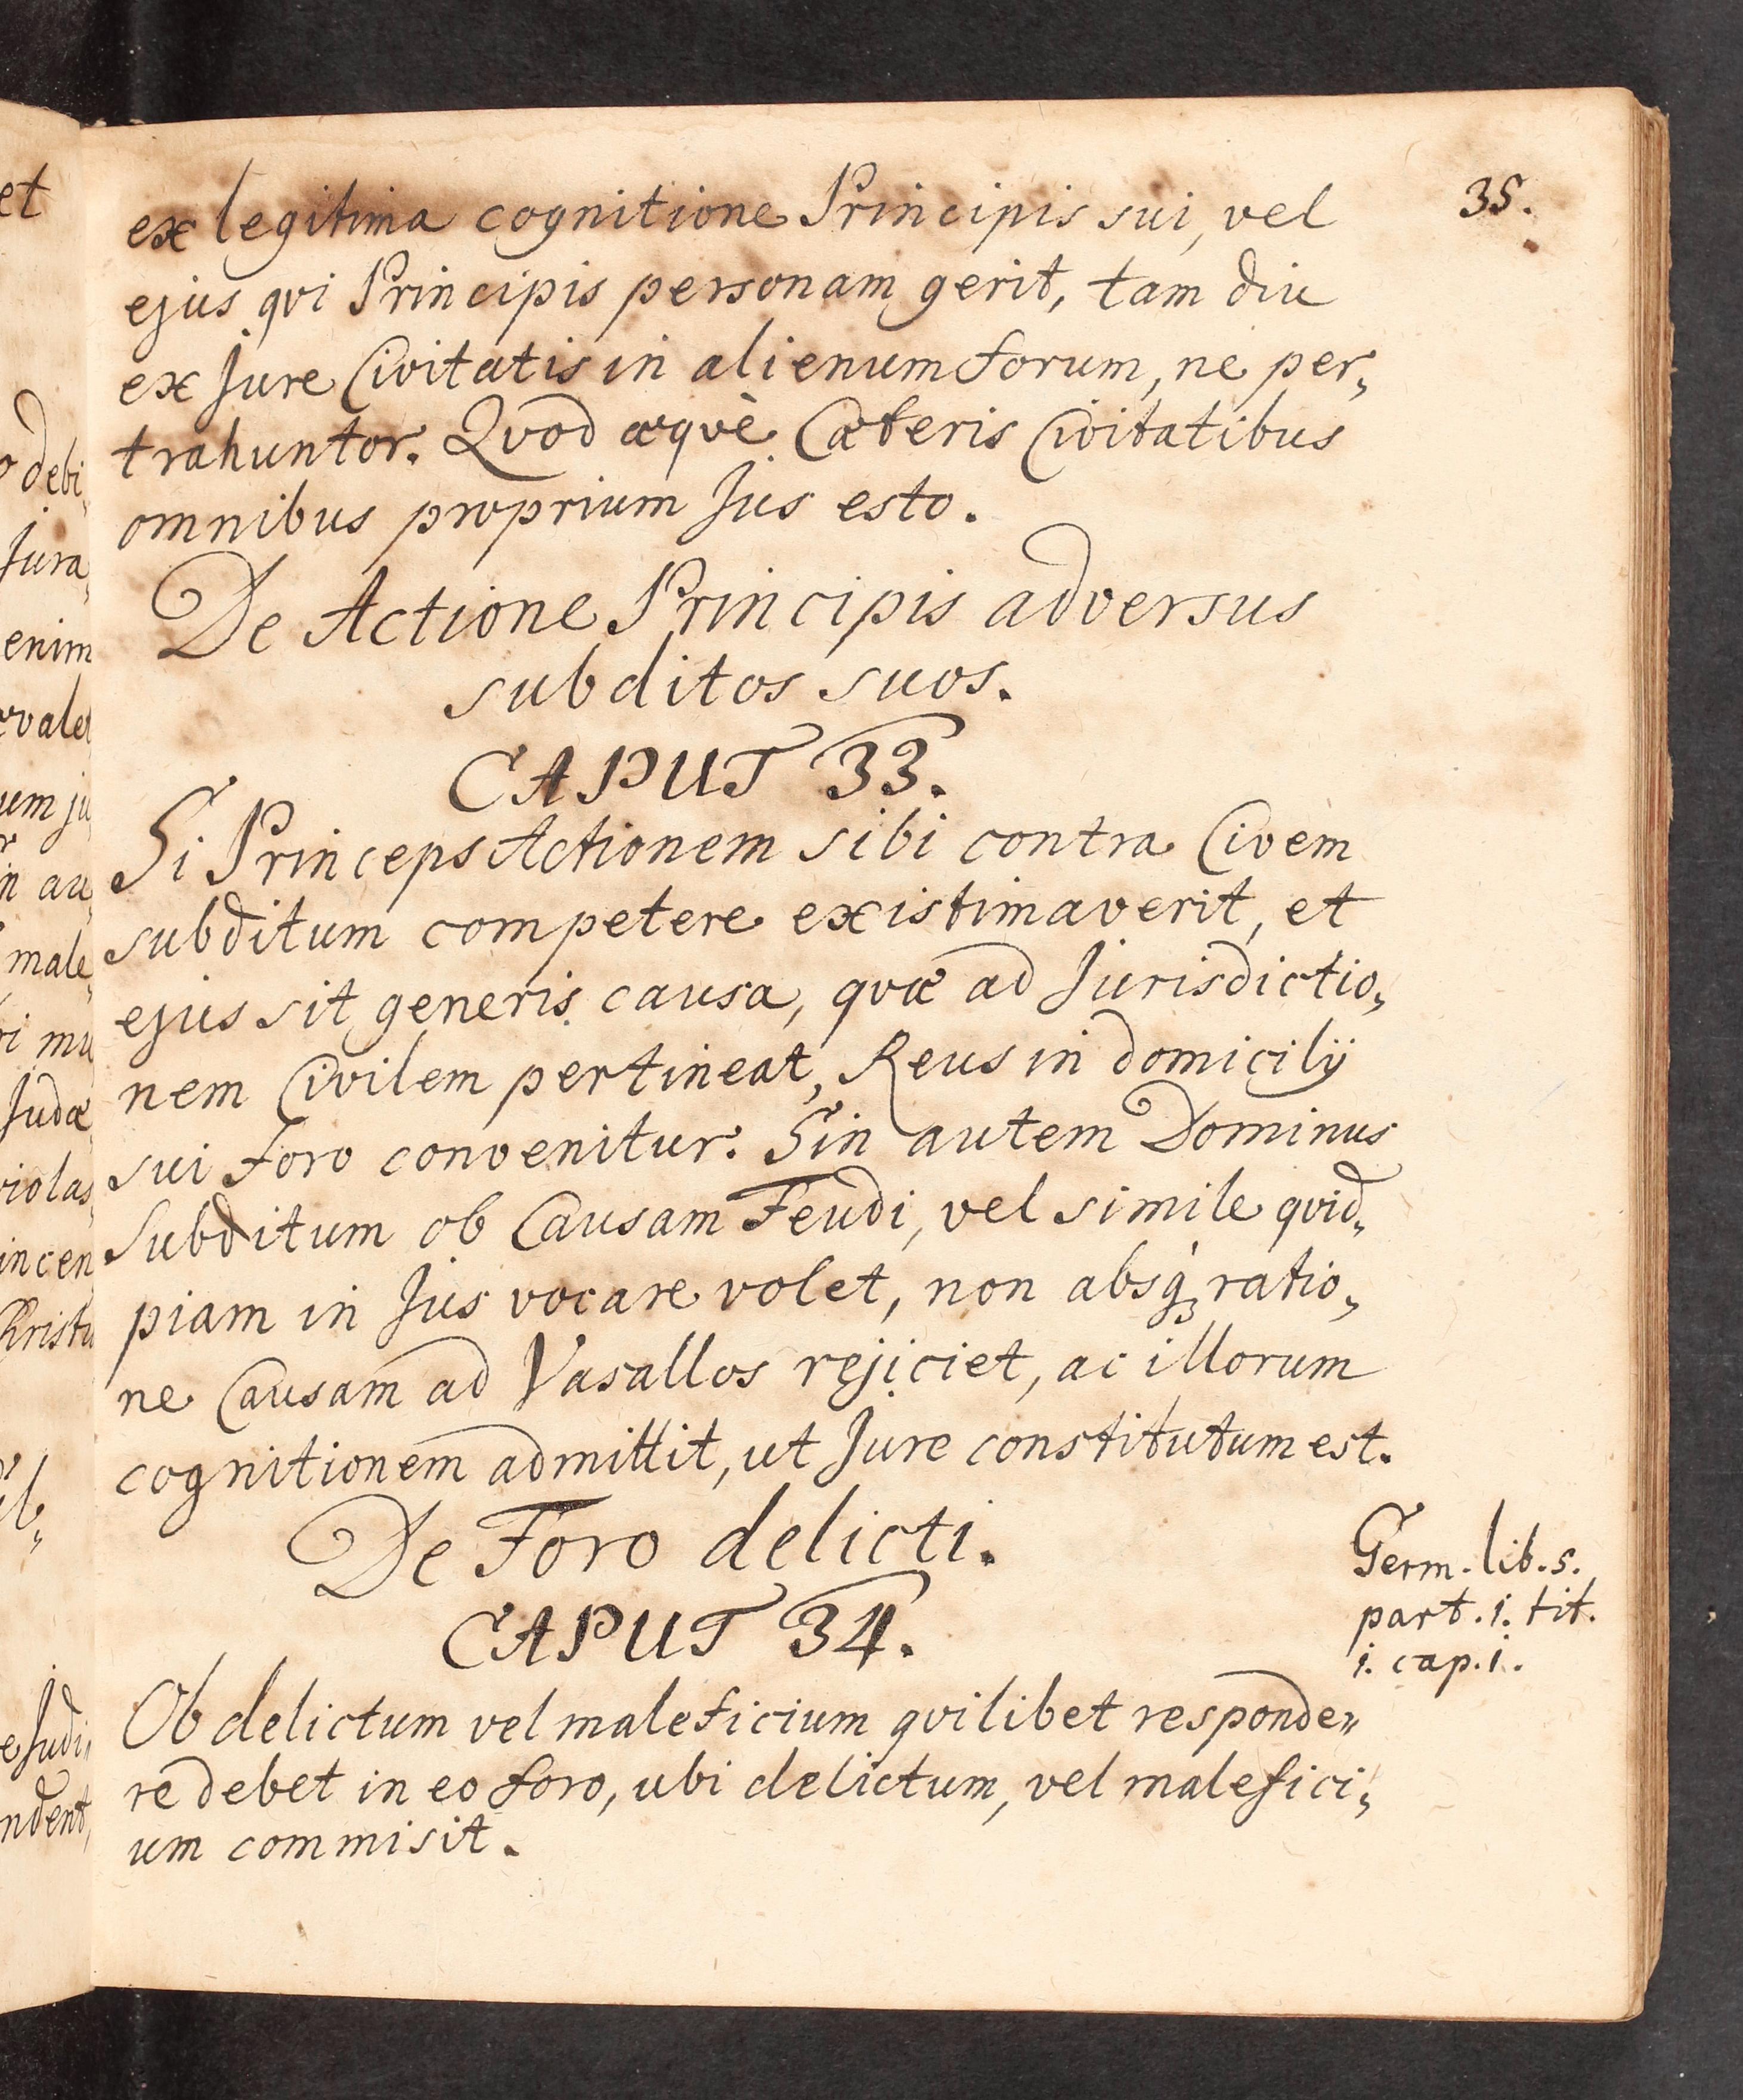 35.
ex legitima cognitione Principis sui, vel
ejus qvi Principis personam gerit, tam diu
ex Jure Civitatis in alienum forum, ne per„
trahuntor. Qvod æqvè Cæteris Civitatibus
omnibus proprium Jus esto.
De Actione Principis adversus
subditos suos.
CAPUT 33.
Si Princeps Actionem sibi contra Civem
subditum competere existimaverit, et
ejus sit generis causa, qvæ ad Jurisdictio„
nem Civilem pertineat, Reus in domicilij
sui foro convenitur. Sin autem Dominus
Subditum ob Causam Feudi, vel simile qvid„
piam in Jus vocare volet, non absq́ꝫ ratio„
ne Causam ad Vasallos rejiciet, ac illorum
cognitionem admittit, ut Jure constitutum est.
De Foro delicti.
CAPUT 34.
Germ. lib. 5.
part. 1. tit.
1. cap. 1.
Ob delictum vel maleficium qvilibet responde„
re debet in eo foro, ubi delictum, vel malefici„
um commisit.
et
debi„
Jura„
enim
um ju
in au„
male„
mu
Judæ
violas„
incen
Judi„
ndent,